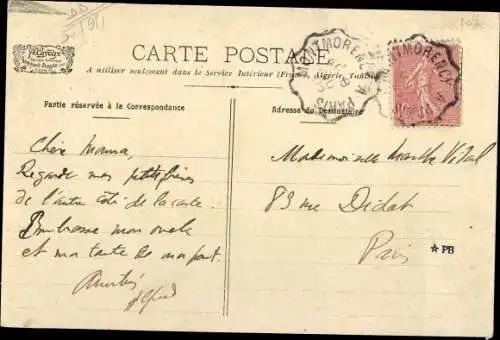 CARTE POSTALE
A utiliser seulement dans le Service Intérieur (France, Algérie, Tunisie
Partie réservée à la Correspondance
Adresse du Destinataire
MONTMORENCY A PARIS
MONTMORENCY
Chère Mama,
Regarde mes petits frères
de l'autre coté de la carte.
Embrasse mon oncle
et ma tante de ma part.
Alfred
Mademoiselle Marthe Vital
83 rue Didot
Paris
★ PB